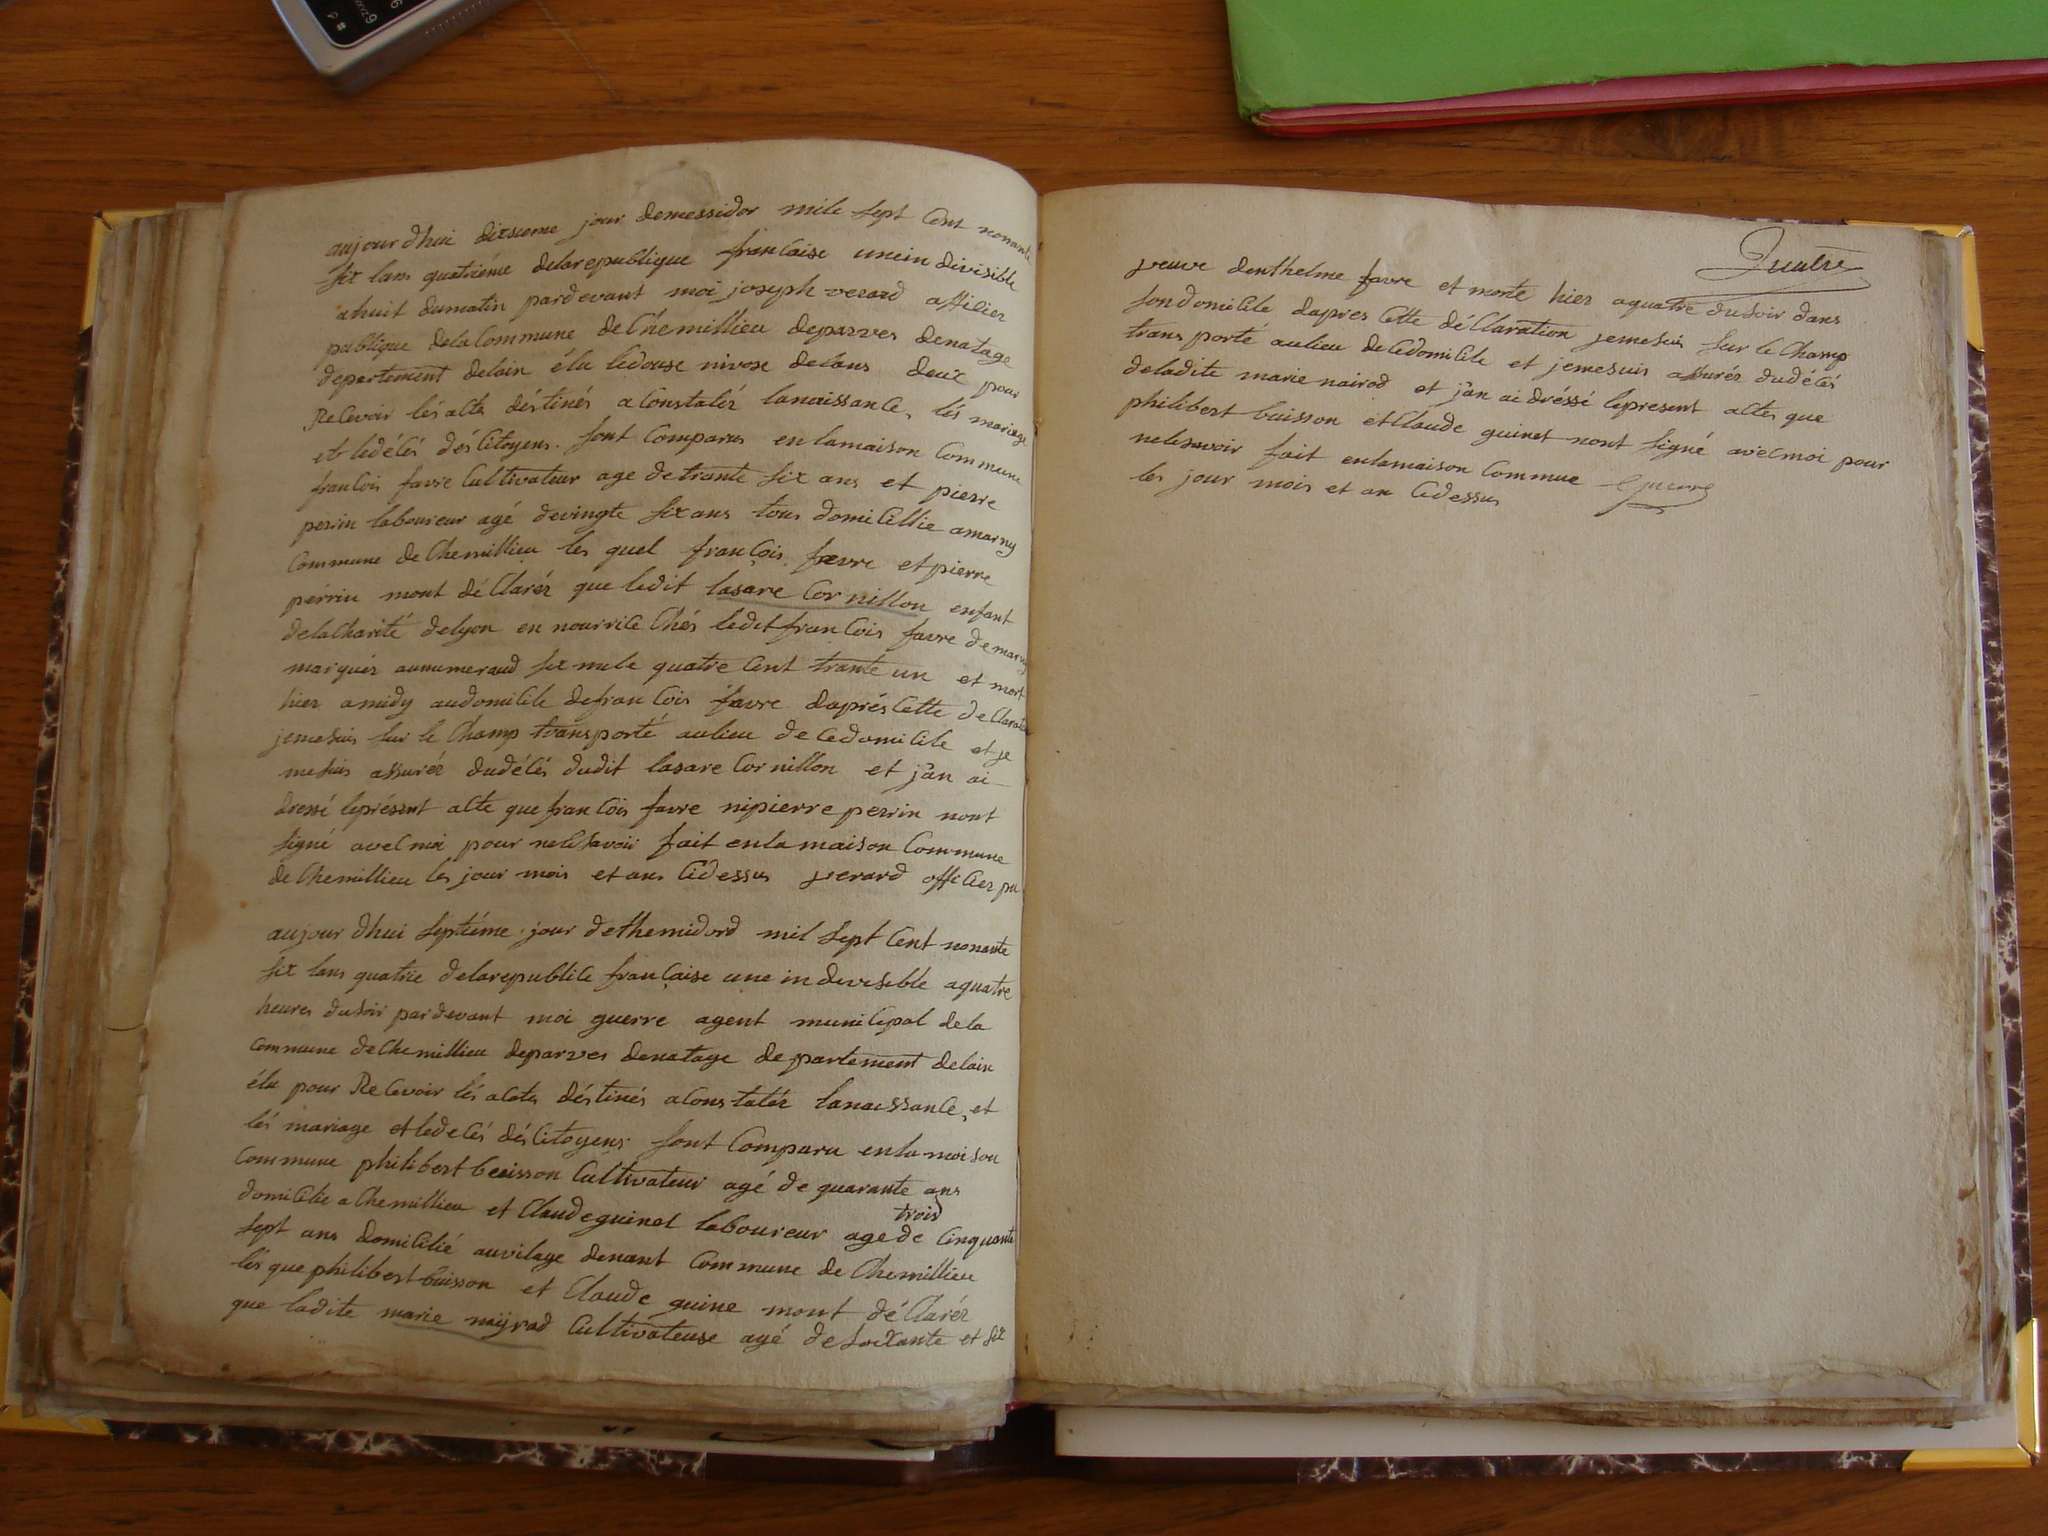 aujourdhui dixieme jour demessidor mile sept Cent nonante
six lans quatriéme delarepublique francaise unein divisible
ahuit dumatin pardevant moi joseph verard officier
publique dela Commune de Chemillieu deparves denatage
departement delain élu ledouse nivose delans deux pour
Recevoir lés acte déstinés aConstatér lanaissance, lés mariage
et ledécés dés Citoyens. sont Comparus en lamaison Commune
francois favre Cultivateur age detrante six ans et pierre
perrin laboureur agé devingte six ans tous domicillie amarny
Commune de Chemillieu les quel françois favre et pierre
pérrin mont déClarér que ledit lasare Cornillon enfant
delaCharité delyon en nourrice Chés ledit francois favre de marny
marquér aunumeraud six mile quatre Cent trante un et mort
hier amidy audomicile defrancois favre daprés Cette deClaration
jemesuis sur le Champ transporté aulieu de Cedomicile et je
mesuis assurér dudécés dudit lasare Cornillon et jan ai
dressé leprésent acte que francois favre nipierre perrin nont
signé avecmoi pour nelesavoir fait enlamaison Commune
de Chemillieu les jour mois et ans Cidessus verard officier pu
aujour dhui septiéme jour dethemidord mil sept Cent nonante
six lans quatrie delarepublice française une indivisible aquatre
heures dusoir pardevant moi guerre agent municipal dela
Commune deChemillieu deparves denatage departement delain
élu pour Recevoir lés acte déstinés aConstatér lanaissance, et
lés mariage et ledecés dés Citoyens sont Comparu enlamaison
Commune philibert buisson Cultivateur agé de quarante ans
domicilie a Chemillieu et Claude guinet laboureur agé de trois Cinquante
sept ans domicilié auvilage denant Commune de Chemillieu
lés que philibert buisson et Claude guine mont déClarér
que ladite marie nayrod Cultivateuse agé de soixante et six
Quatre
veuve denthelme favre et morte hier aquatre dusoir dans
sondomicile dapres Cette déClaration jemesuis sur le Champ
transporté aulieu deCedomicile et jemesuis assurér dudécés
deladite marie nairod et jan ai dréssé lepresent actes que
philibert buisson et Claude guinet nont signé avecmoi pour
nelesavoir fait enlamaison Commue guerre
les jour mois et an Cidessus